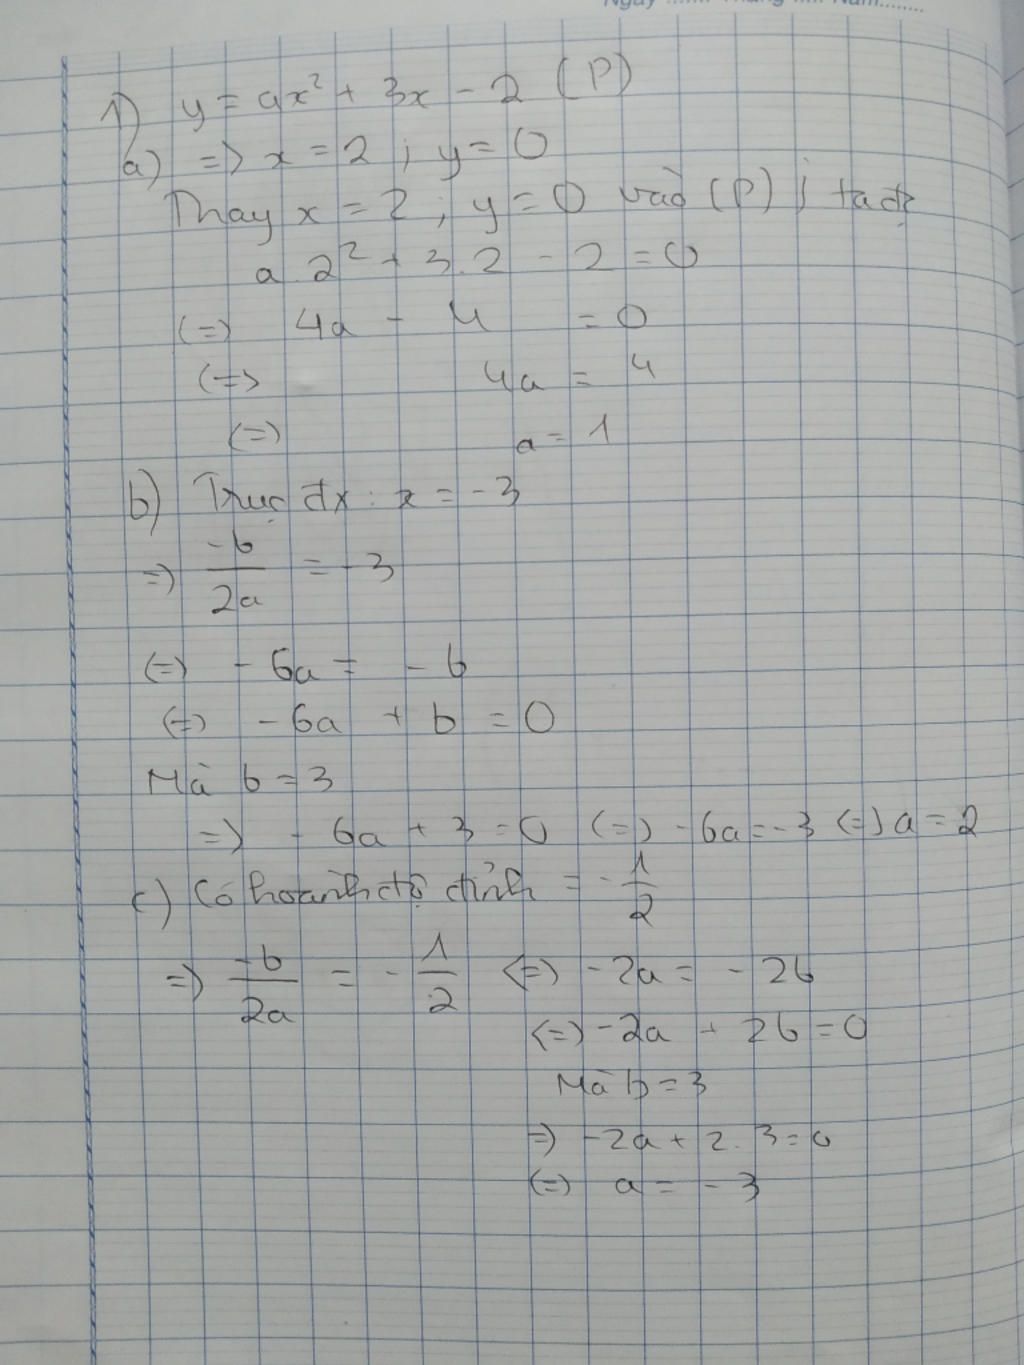 Ngày ....... Tháng .... Năm........
1) y = ax² + 3x - 2 (P)
a) => x = 2 ; y = 0
Thay x = 2 ; y = 0 vào (P) ; ta đc
a.2² + 3.2 - 2 = 0
(=) 4a - 4 = 0
(=> 4a = 4
(=) a = 1
b) Trục đx : x = -3
=) -b/2a = -3
(=) -6a = -b
(=) -6a + b = 0
Mà b = 3
=) -6a + 3 = 0 (=) -6a = -3 (=) a = 2
c) Có hoành độ đỉnh = -1/2
=) -b/2a = -1/2 (=) -2a = -2b
(=) -2a + 2b = 0
Mà b = 3
=) -2a + 2.3 = 0
(=) a = -3